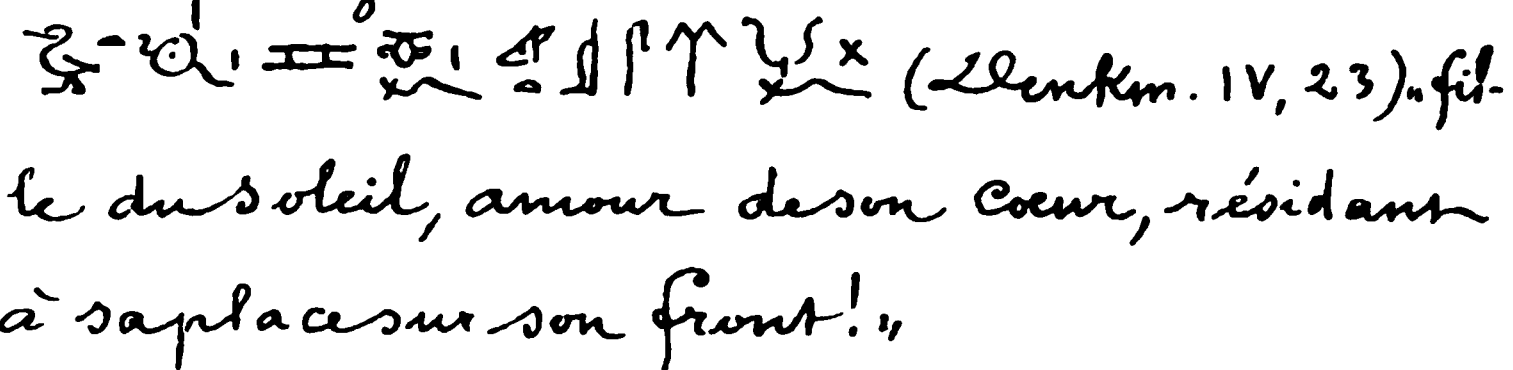 (Denkm. IV, 23) „fil-
le du soleil, amour de son cœur, résidant
à sa place sur son front! „